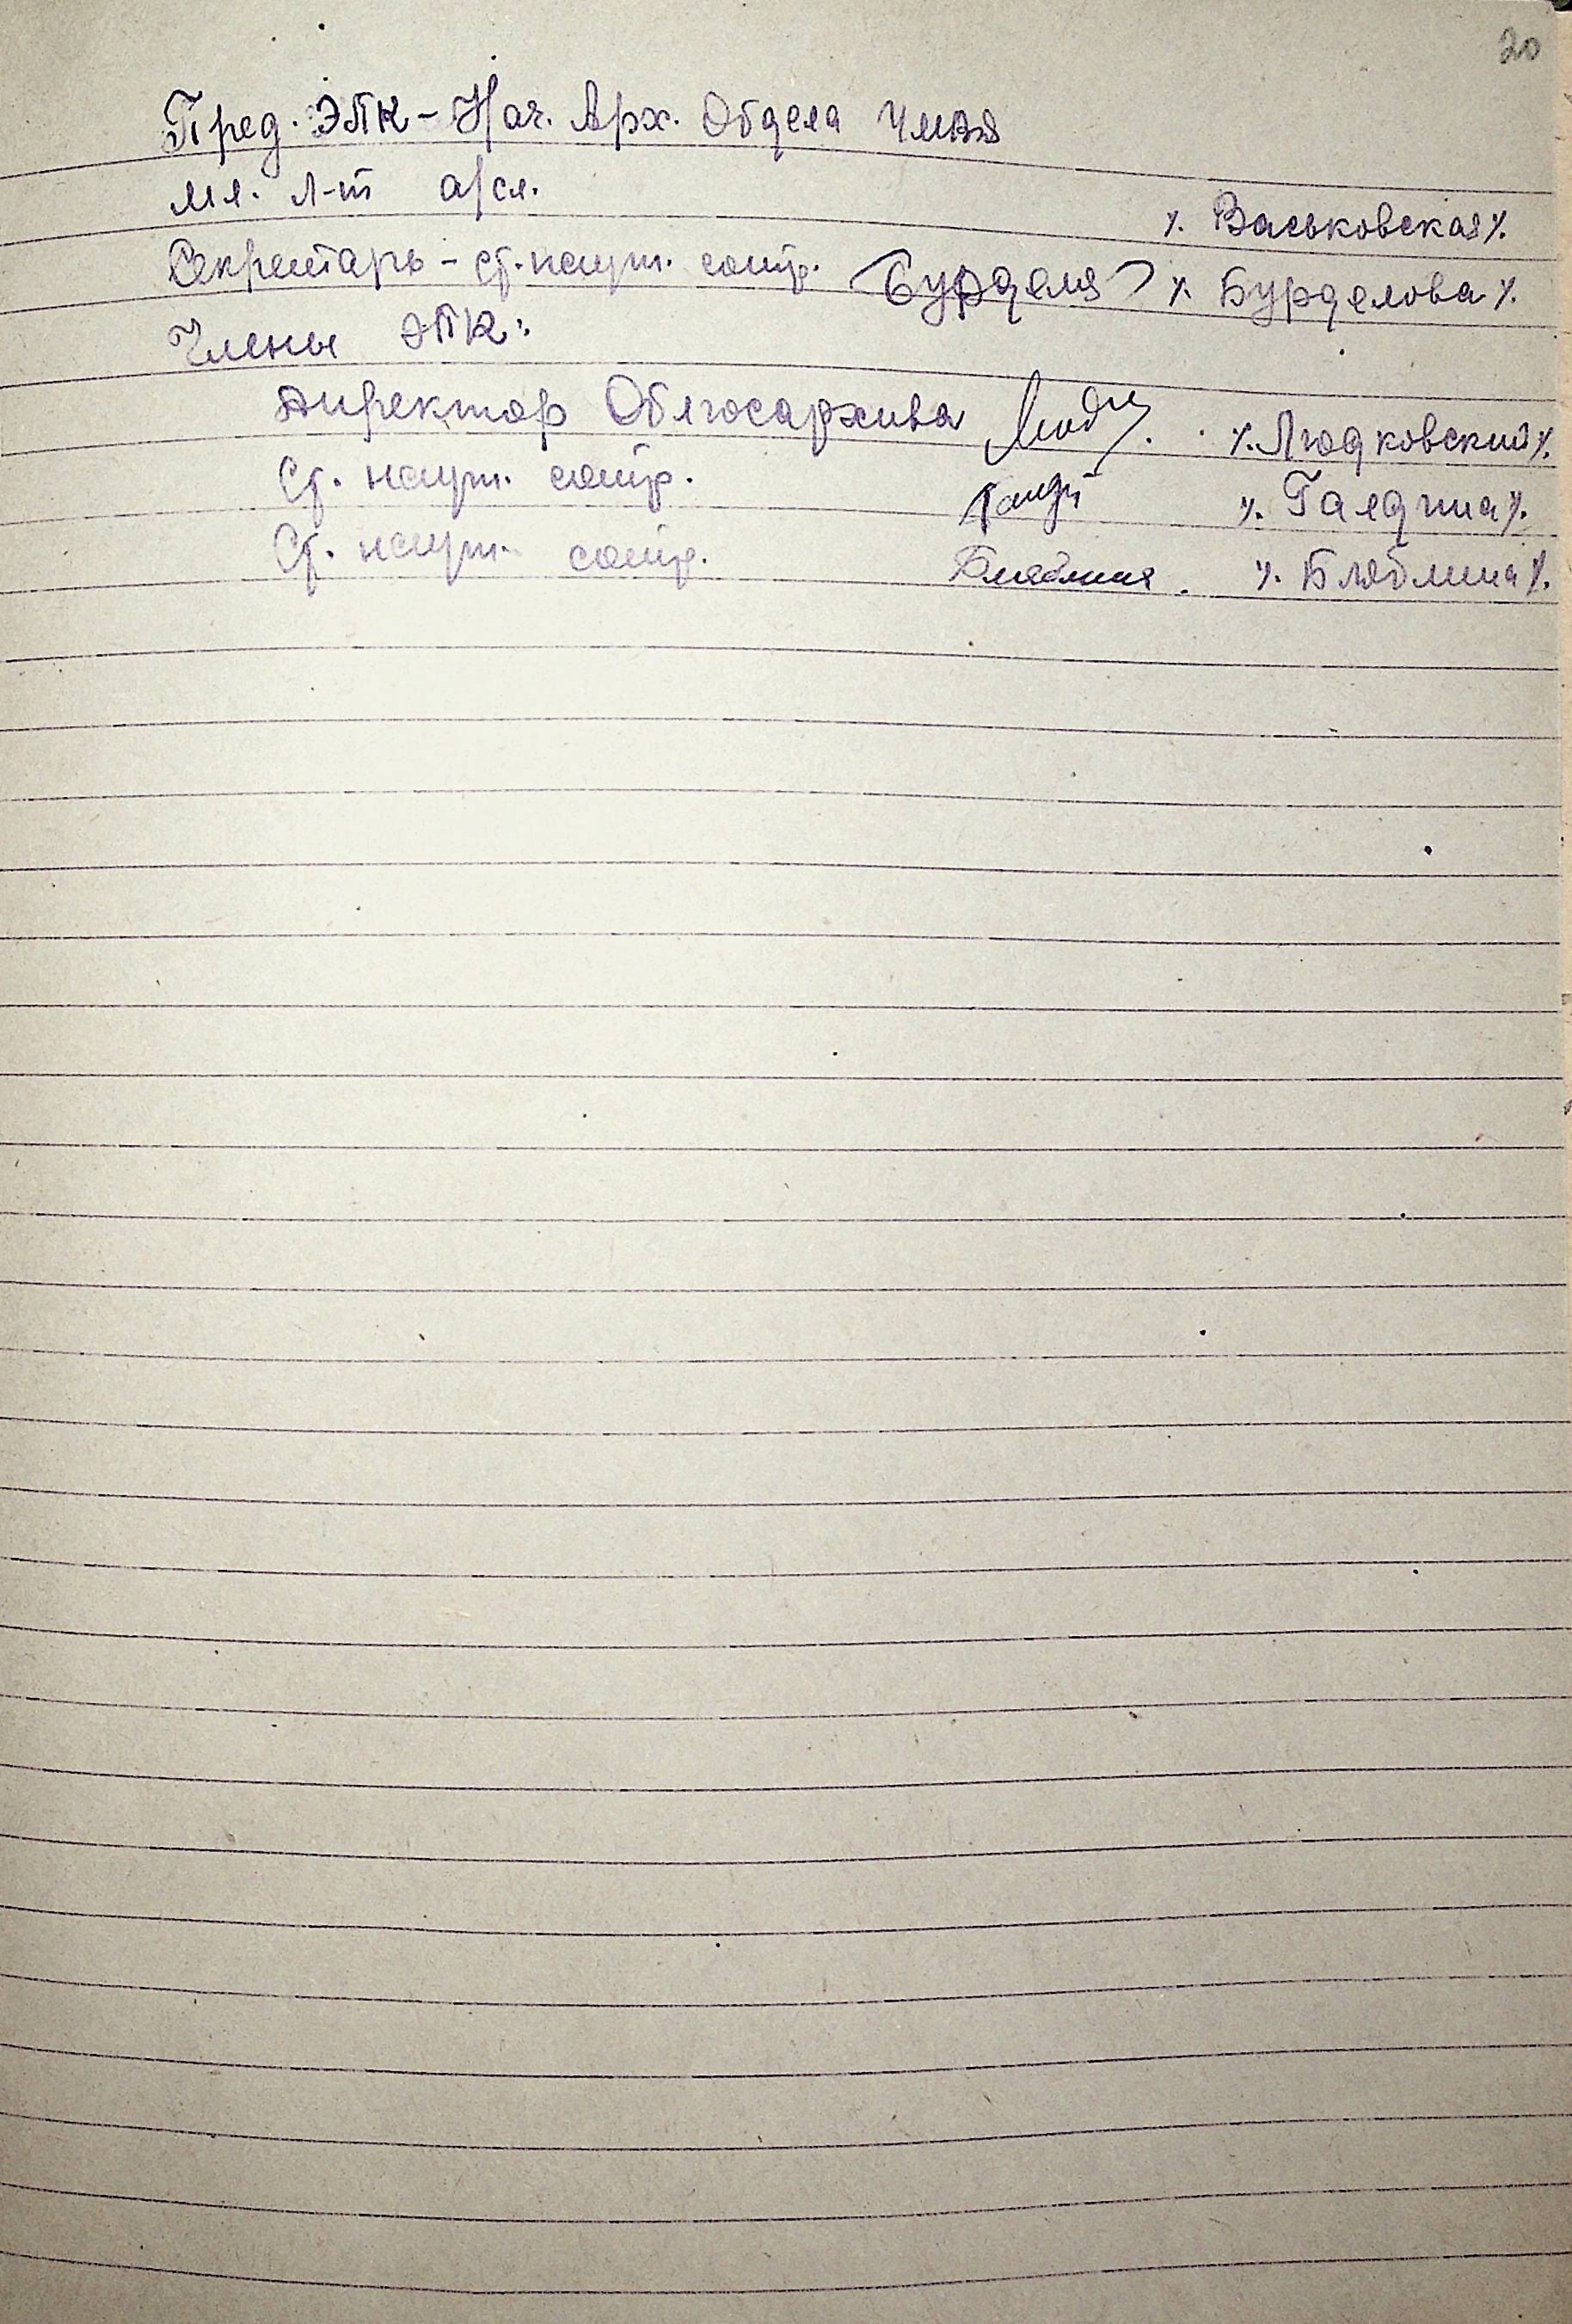 20
Пред. ЭПК - Нач. Арх. Отдела УМВД
мл. л-т а/сл. /. Васьковская /.
Секретарь - ст. научн. сотр. /. Бурделова /.
Члены ЭПК:
Директор Облгосархива /. Людковский /.
Ст. научн. сотр. /. Галдина /.
Ст. научн. сотр. /. Бляблина /.